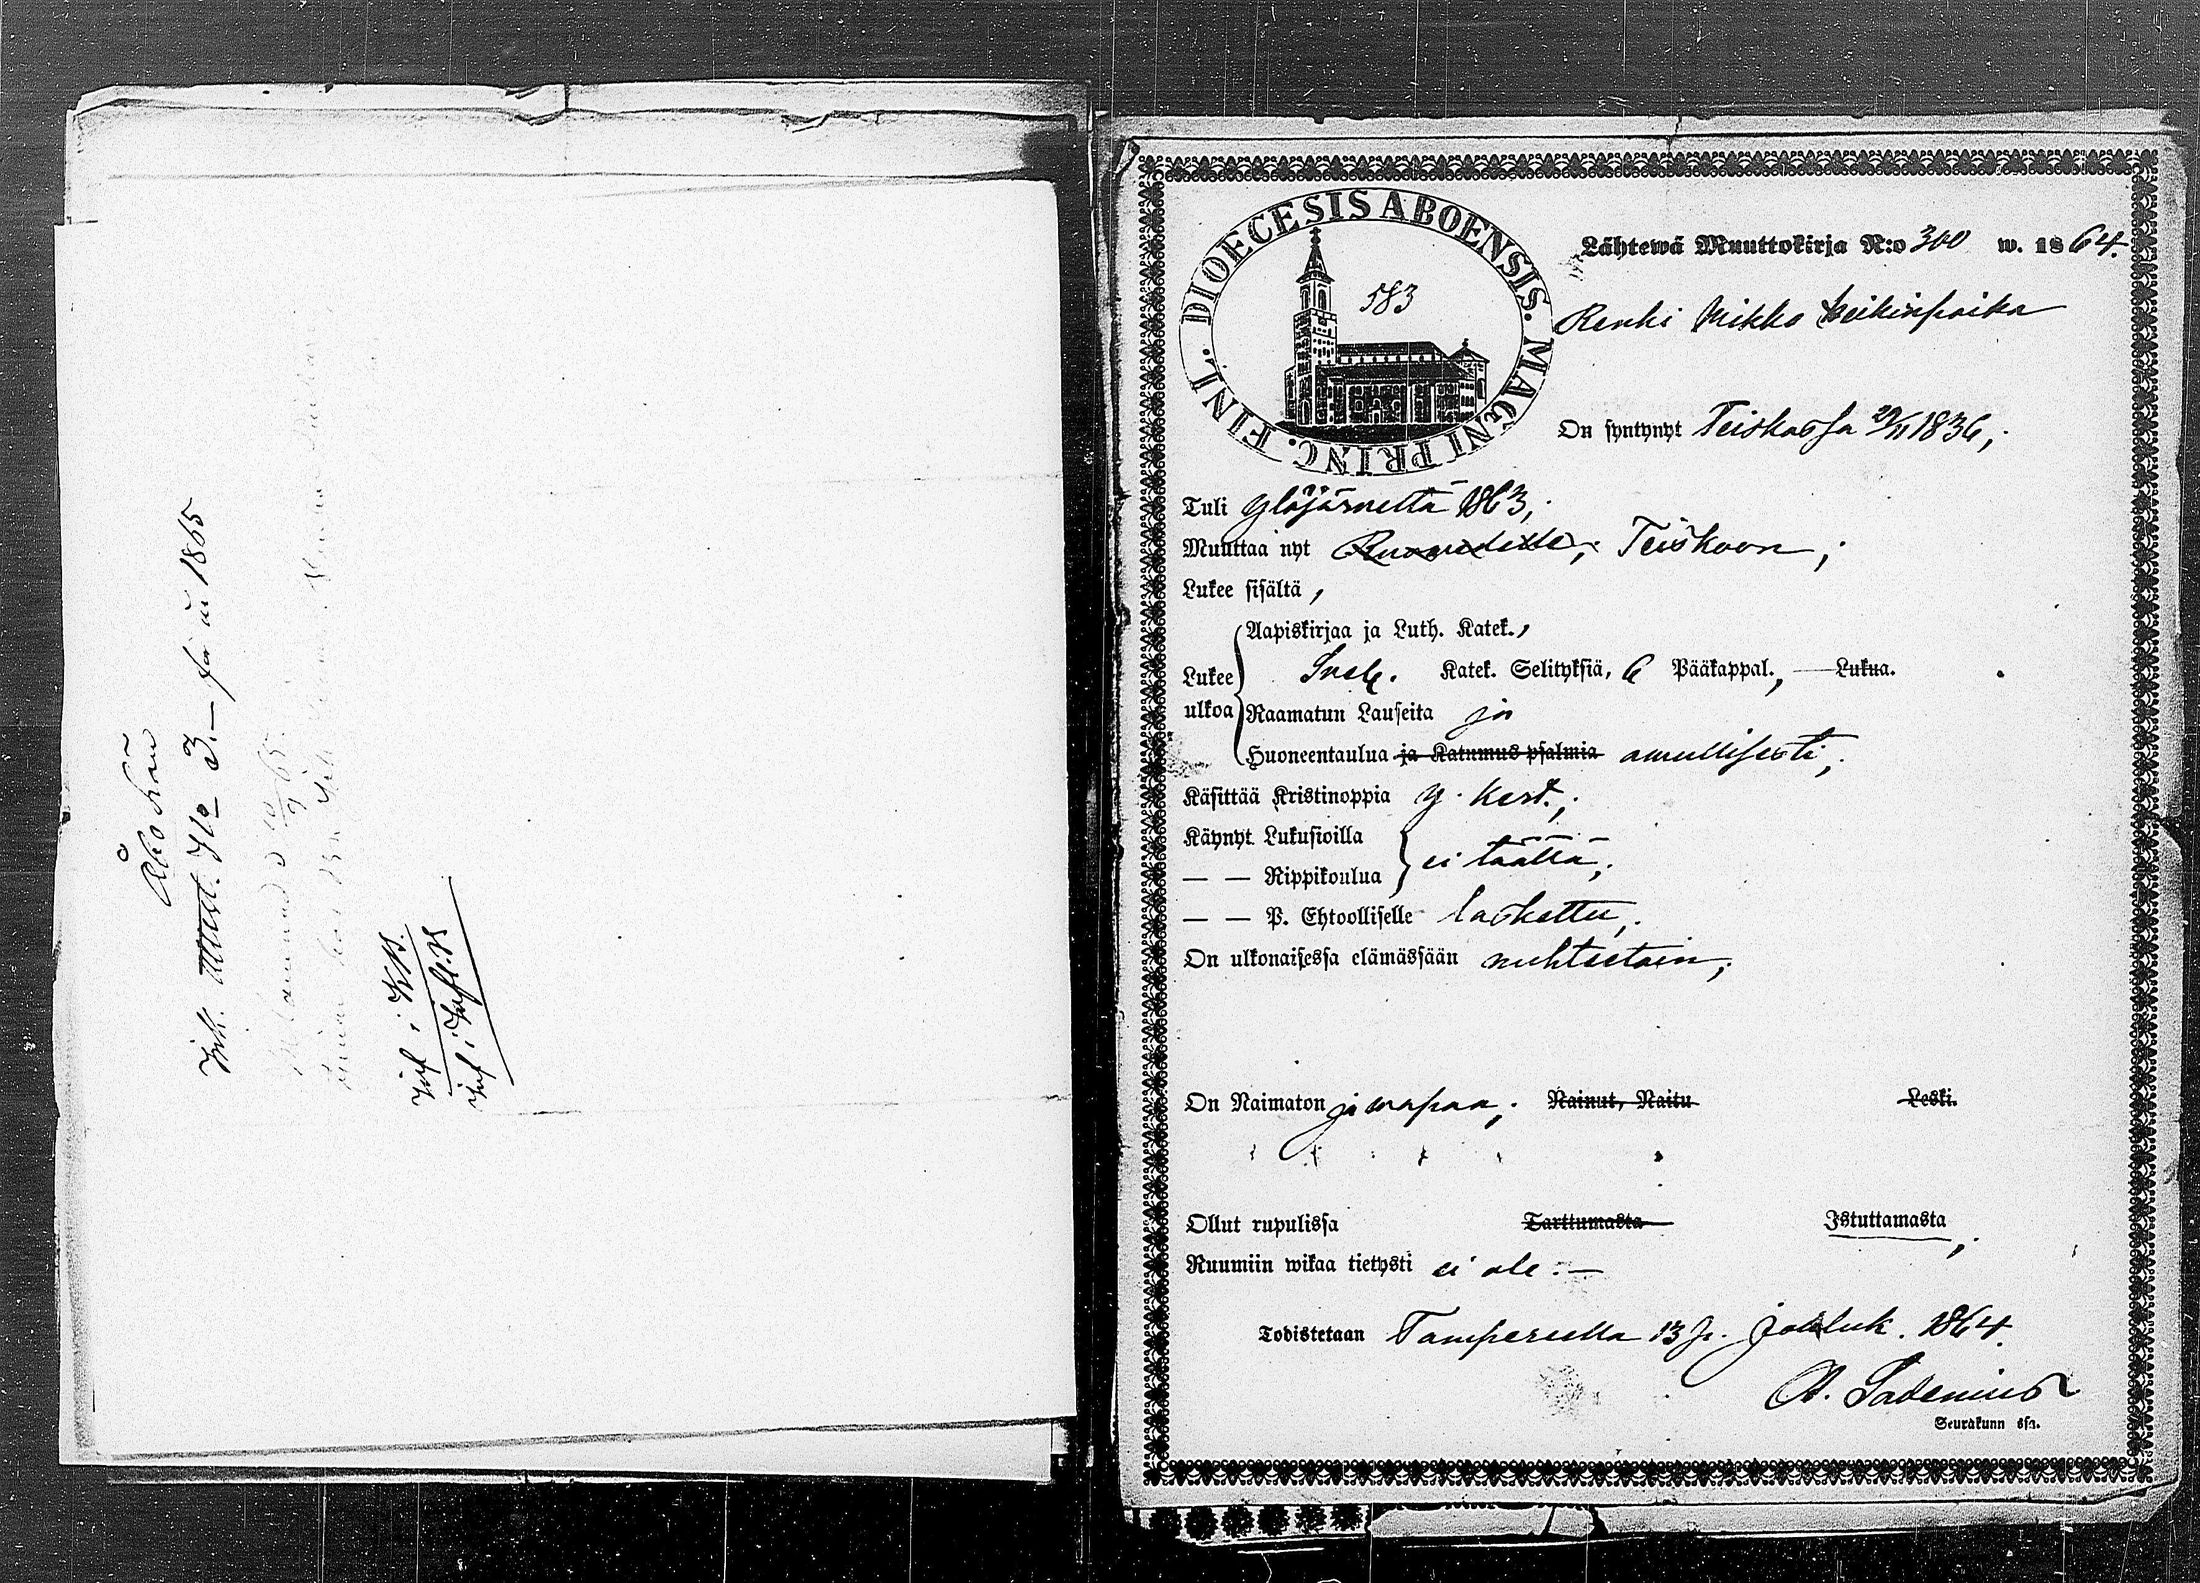 Åbo Län
Ink. Attest. N:o 3.– för år 1865
10/9 65.
Inf. i KB.
Inf. i Infl. B
DIOECESIS ABOENSIS. MAGNI PRINC. FINL.
583
Lähtewä Muuttokirja N:o 300 w. 1864.
Renki Mikko Heikinpoika
On syntynyt Teiskossa 29/11 1836,
Tuli Ylöjärveltä 1863,
Muuttaa nyt Teiskoon,
Lukee sisältä,
Aapiskirjaa ja Luth. Katek.,
Lukee ulkoa Sveb. Katek. Selityksiä, 6 Pääkappal., Lukua.
Raamatun Lauseita ja
Huoneentaulua ja Katumus psalmia awullisesti,
Käsittää Kristinoppia y. kert.,
Käynyt Lukusioilla
ei täältä,
— — Rippikoulua
— — P. Ehtoolliselle laskettu,
On ulkonaisessa elämässään nuhteetoin,
On Naimaton ja wapaa, Nainut, Naitu Leski.
Ollut rupulissa Tarttumasta Istuttamasta,
Ruumiin wikaa tietysti ei ole.—
Todistetaan Tampereella 13 p. Jouluk. 1864.
A. Sadenius
Seurakunn